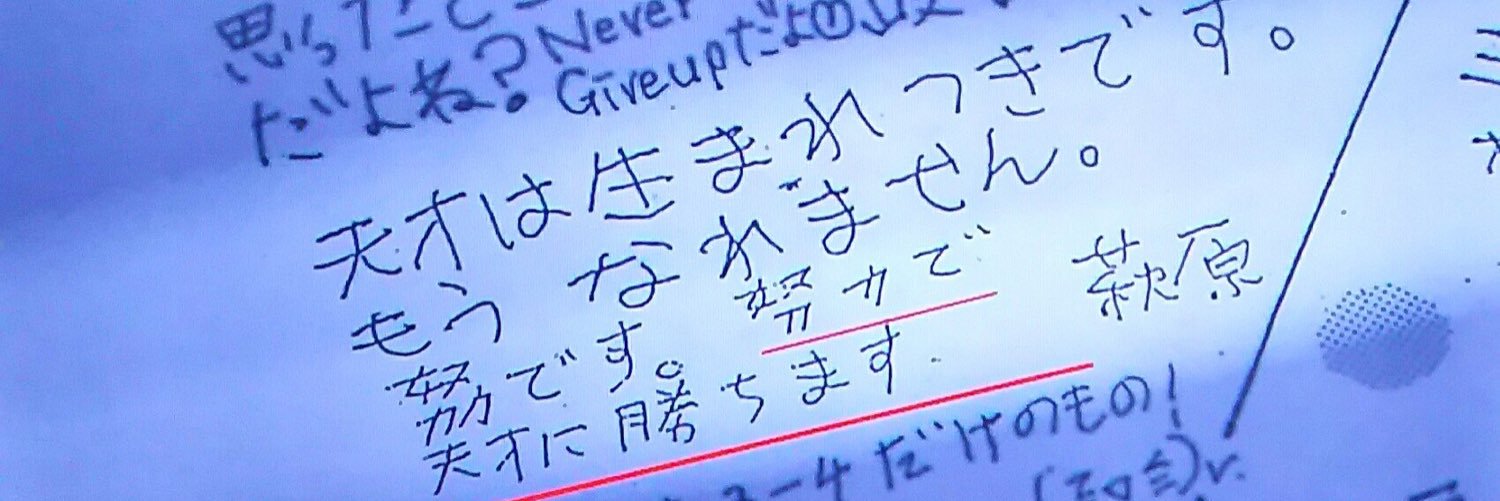 思った
だよね?Never
Giveupだよ
天才は生まれつきです。
もうなれません。
努です。努力で
天才に勝ちます.
萩原
-4だけのもの!